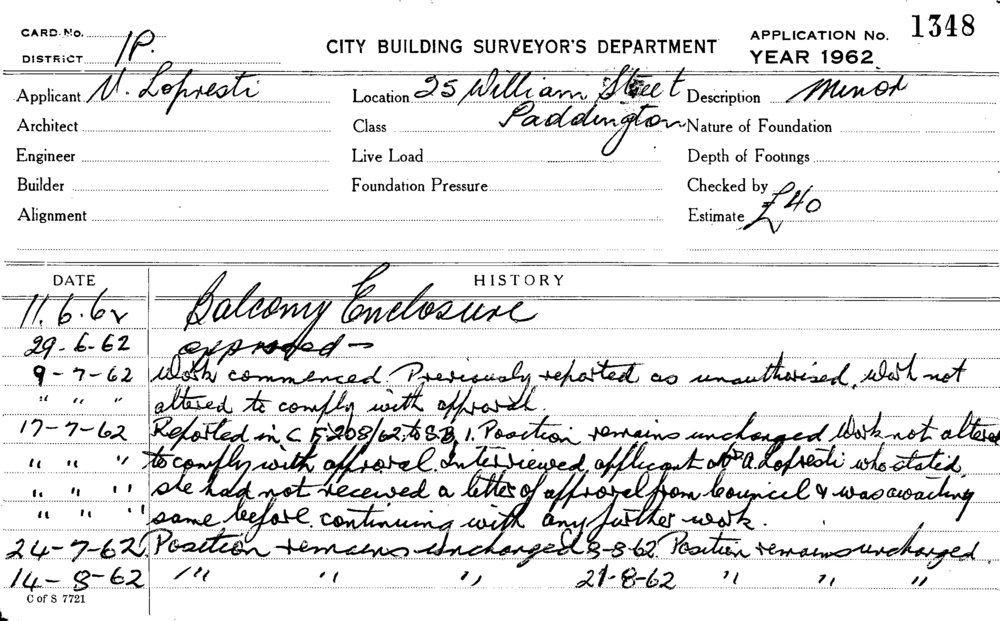 CARD No.
DISTRICT 1P.
CITY BUILDING SURVEYOR'S DEPARTMENT
APPLICATION No. 1348
YEAR 1962
Applicant V. Lopresti
Location 25 William Street
Paddington
Description Minor
Architect
Class
Nature of Foundation
Engineer
Live Load
Depth of Footings
Builder
Foundation Pressure
Checked by
Alignment
Estimate £40
DATE HISTORY
11.6.62 Balcony Enclosure
29-6-62 approved -
9-7-62 Work commenced. Previously reported as unauthorised, work not
" " " altered to comply with approval.
17-7-62 Reported in C F 208/62 to S.B. 1. Position remains unchanged Work not altered
" " " to comply with approval. Interviewed applicant Mrs A. Lopresti who stated
" " " she had not received a letter of approval from Council & was awaiting
" " " same before continuing with any further work.
24-7-62 Position remains unchanged 8-8-62. Position remains unchanged
14-8-62 " " " 21-8-62 " " "
C of S 7721